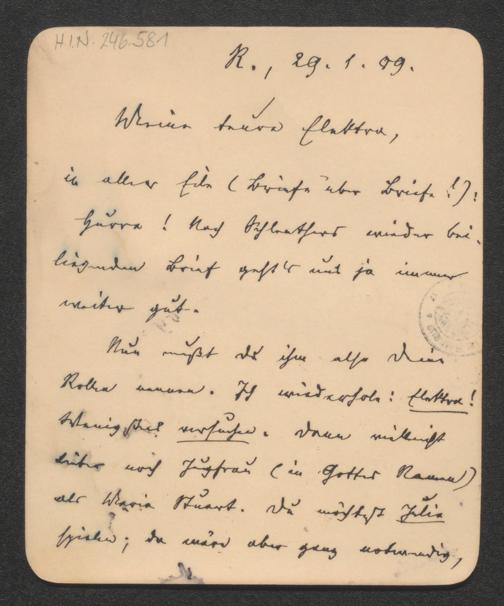 H.I.N. 246.581
R., 29. 1. 09.
Meine teure Elektra,
in aller Eile (Briefe über Briefe!):
Hurra! Nach Schlenthers wieder bei-
liegendem Brief geht's uns ja immer
weiter gut.
Nun mußt du ihm also deine
Rollen nennen. Ich wiederhole: Elektra!
Wenigstens versuchen. Dann vielleicht
lieber noch Jugfrau (in Gottes Namen)
als Maria Stuart. Du möchtest Julia
spielen; da wäre aber ganz notwendig,